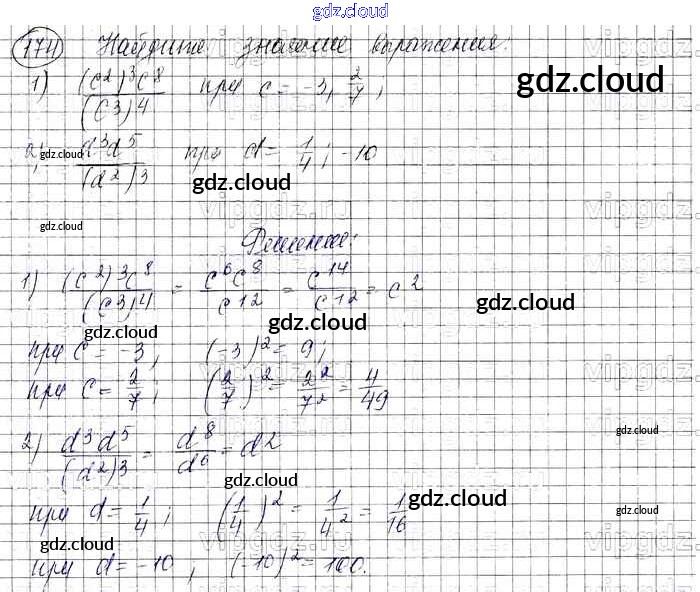 gdz.cloud
174 Найдите значение выражения:
1) (c²)³c⁸/(c³)⁴ при c = -3, 2/7; gdz.cloud
2) gdz.cloud d³d⁵/(d²)³ при d = 1/4; -10
gdz.cloud
gdz.cloud
Решение:
1) (c²)³c⁸/(c³)⁴ = c⁶c⁸/c¹² = c¹⁴/c¹² = c² gdz.cloud
gdz.cloud gdz.cloud
при c = -3, (-3)² = 9;
при c = 2/7; (2/7)² = 2²/7² = 4/49
2) d³d⁵/(d²)³ = d⁸/d⁶ = d² gdz.cloud
gdz.cloud gdz.cloud
при d = 1/4; (1/4)² = 1/4² = 1/16 gdz.cloud
gdz.cloud gdz.cloud
при d = -10, (-10)² = 100.